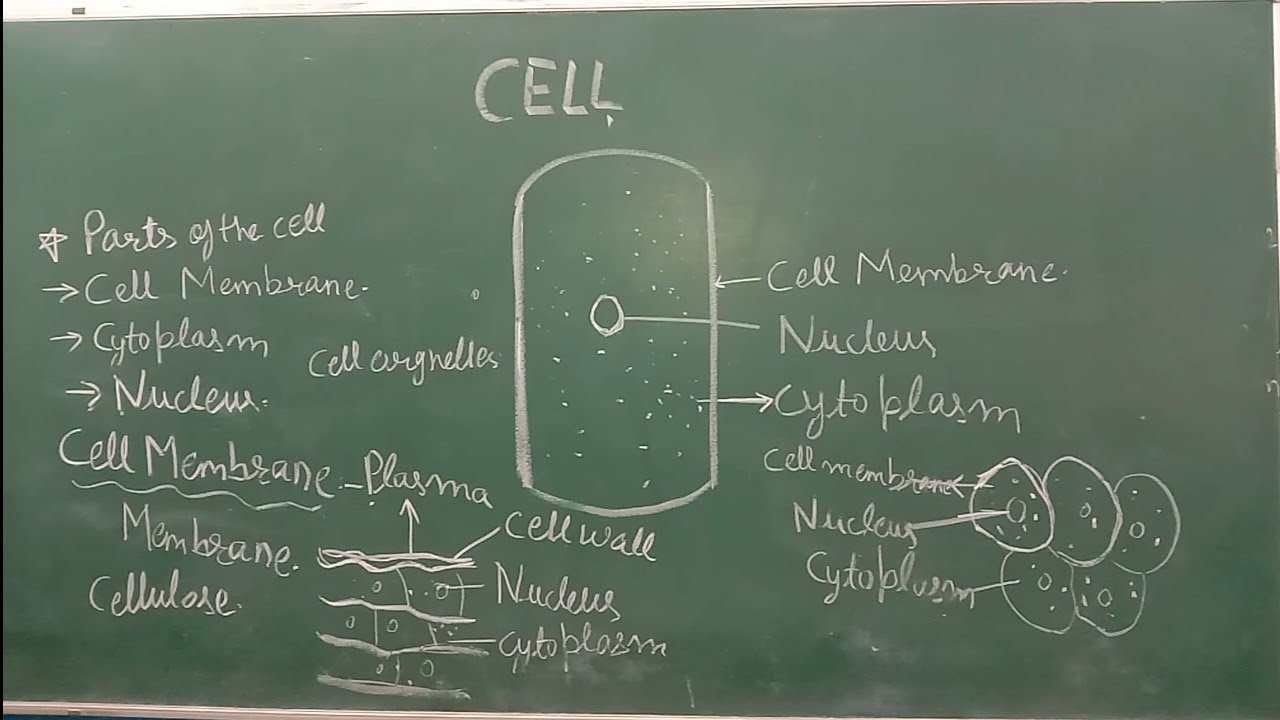 CELL
☆ Parts of the cell
→ Cell Membrane.
→ Cytoplasm
→ Nucleus.
Cell orgnelles
Cell Membrane
Nucleus
Cytoplasm
Cell Membrane - Plasma
Membrane.
Cellulose.
Cell wall
Nucleus
Cytoplasm
Cell membrane
Nucleus
Cytoplasm